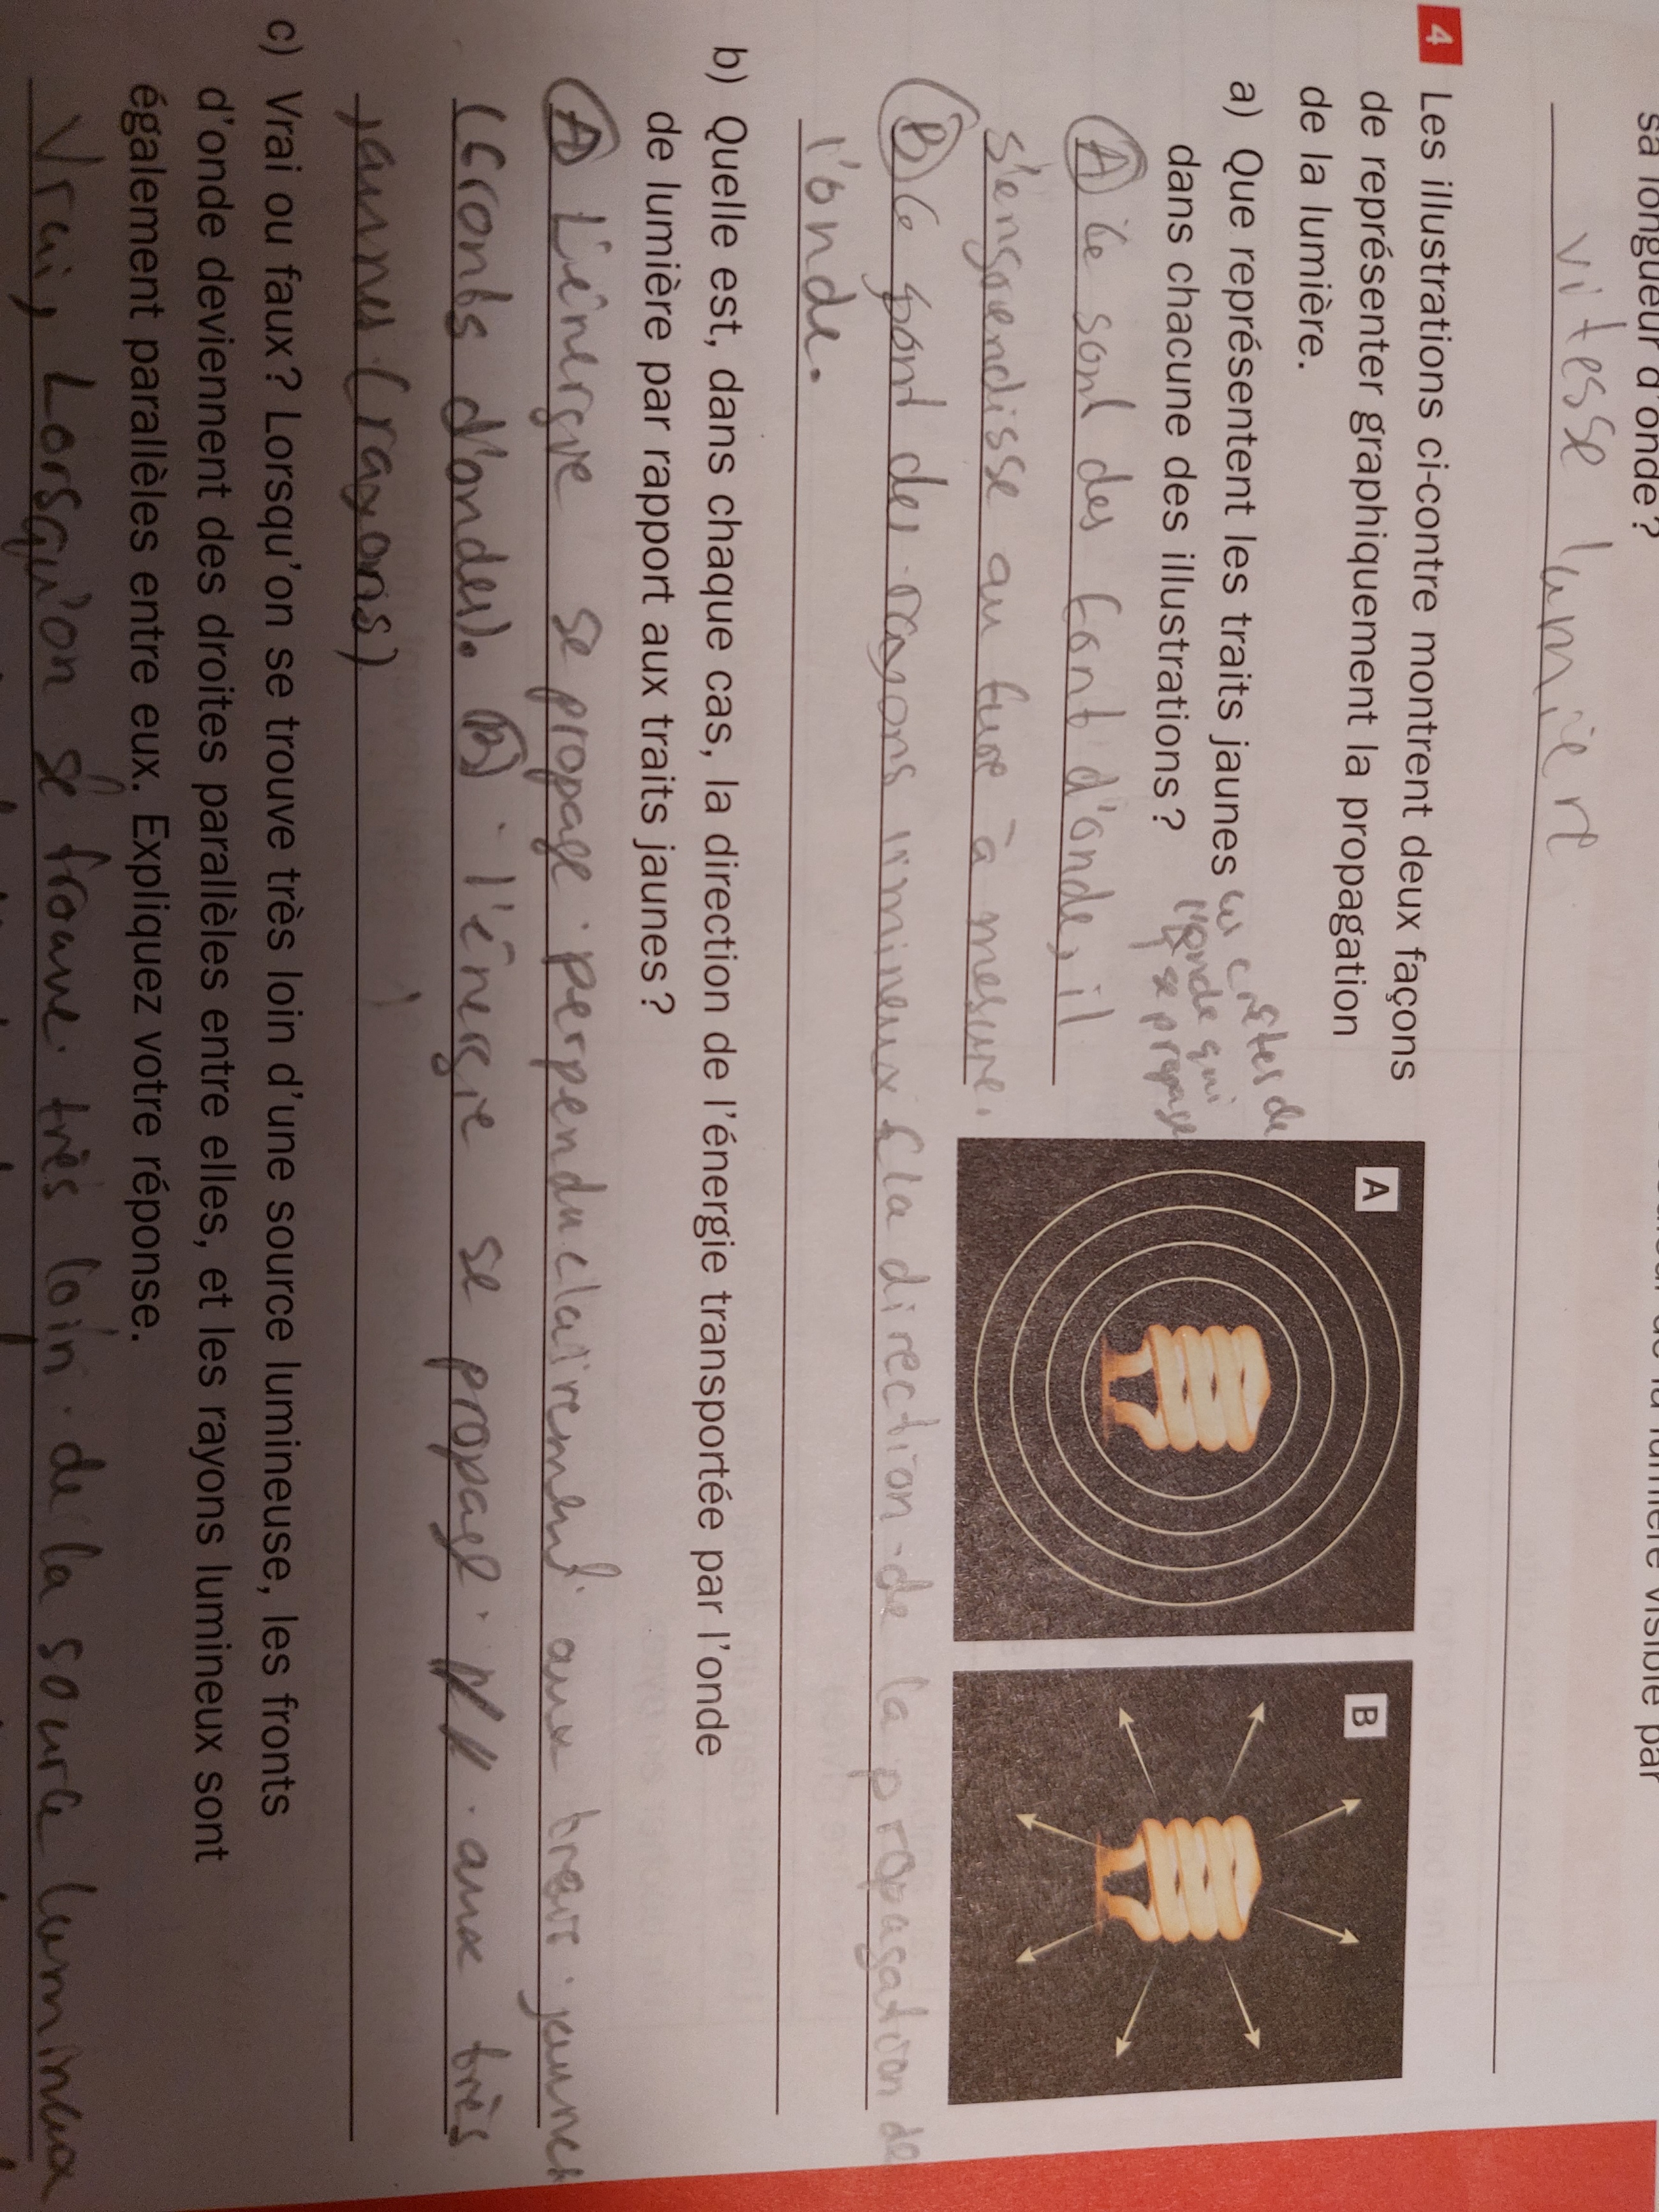 sa longueur d'onde?
vitesse lumière
4 Les illustrations ci-contre montrent deux façons
de représenter graphiquement la propagation
de la lumière.
a) Que représentent les traits jaunes
dans chacune des illustrations?
les crêtes de
l'onde qui
se propage
A ce sont des front d'onde, il
s'engendisse au fure à mesure.
B Ce sont des rayons lumineux (la direction de la propagation de
l'onde.
A
B
b) Quelle est, dans chaque cas, la direction de l'énergie transportée par l'onde
de lumière par rapport aux traits jaunes?
A L'énergie se propage perpenduclairement aux trais jaunes
(fronts d'ondes). B l'énergie se propage // aux très
jaunes (rayons)
c) Vrai ou faux? Lorsqu'on se trouve très loin d'une source lumineuse, les fronts
d'onde deviennent des droites parallèles entre elles, et les rayons lumineux sont
également parallèles entre eux. Expliquez votre réponse.
Vrai, Lorsqu'on se trouve très loin de la source lumineux